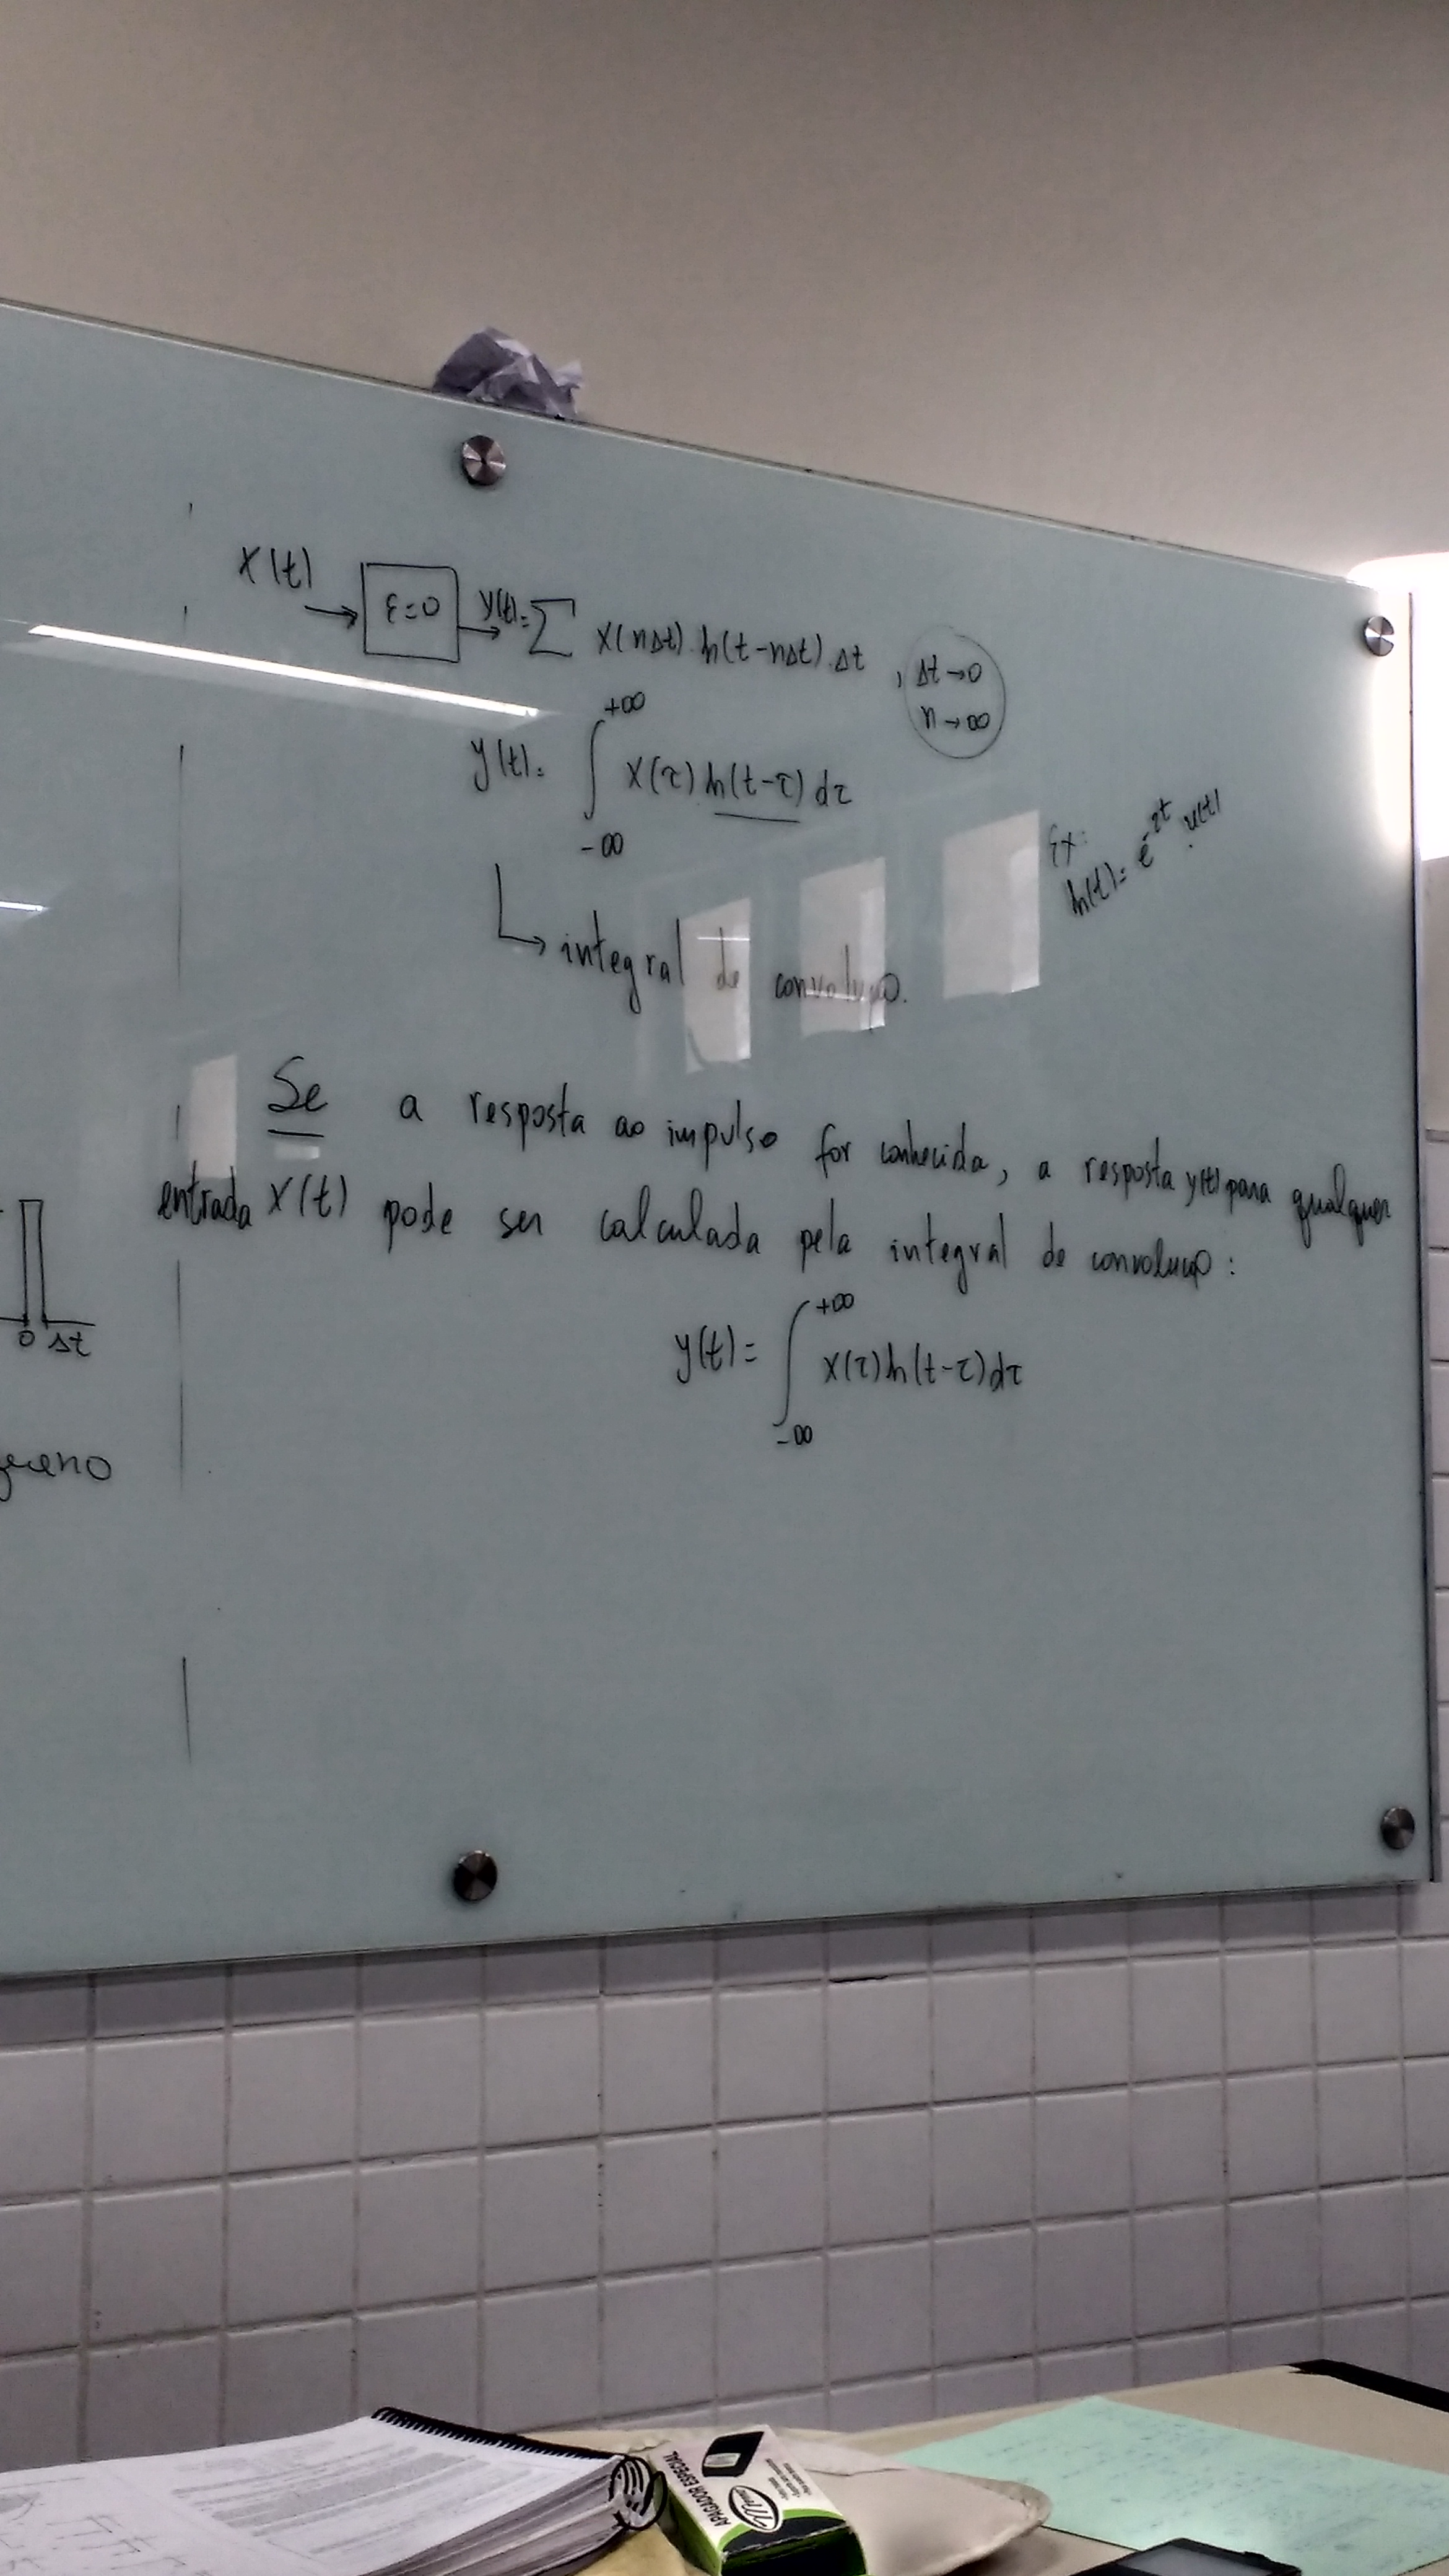 x(t) → ε=0 → y(t)=∑ x(nΔt).h(t-nΔt).Δt , Δt→0
n→∞
y(t)= ∫ x(τ)h(t-τ)dτ
+∞
-∞
Ex:
h(t)= e^-2t.u(t)
↳ integral de convolução.
Se a resposta ao impulso for conhecida, a resposta y(t) para qualquer
entrada x(t) pode ser calculada pela integral de convolução:
y(t)= ∫ x(τ)h(t-τ)dτ
+∞
-∞
0 Δt
queno
APAGADOR ESPECIAL